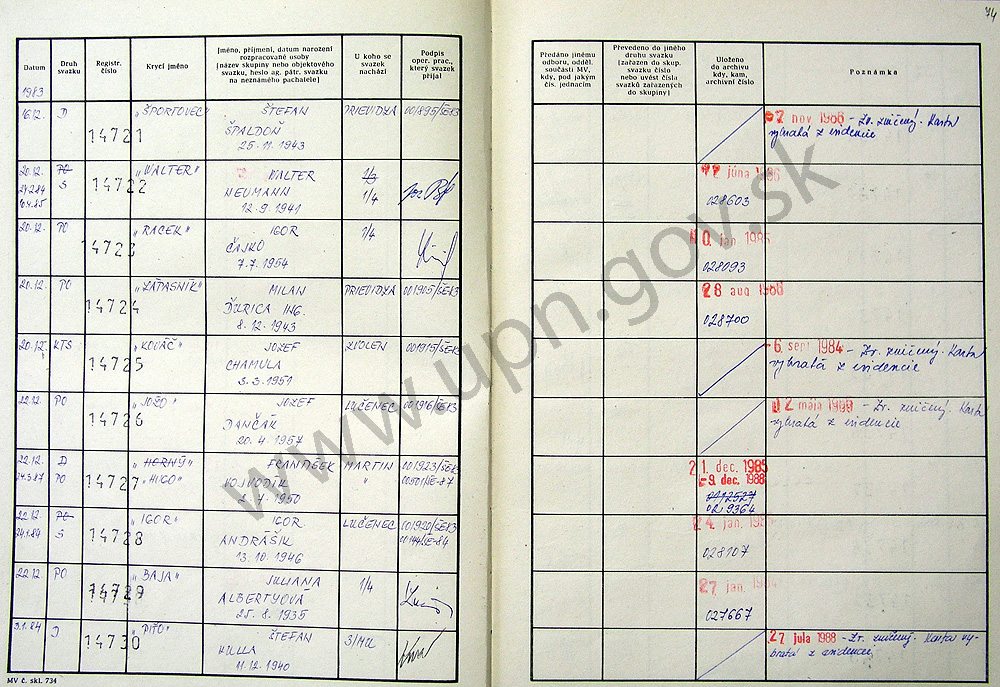 74
Datum
Druh svazku
Registr. číslo
Krycí jméno
Jméno, příjmení, datum narození rozpracované osoby
[název skupiny nebo objektového svazku, heslo ag. pátr. svazku na neznámého pachatele]
U koho se svazek nachází
Podpis oper. prac., který svazek přijal
Předáno jinému odboru, odděl. součásti MV, kdy, pod jakým čís. jednacím
Převedeno do jiného druhu svazku [zařazen do skup. svazku číslo nebo uvést čísla svazků zařazených do skupiny]
Uloženo do archivu kdy, kam, archivní číslo
Poznámka
1983
16.12. D 14721 "ŠPORTOVEC" ŠTEFAN PRIEVIDZA 001895/ŠEK3
ŠPALDOŇ
25.11.1943
7 nov 1986 - Zv. zničený. Karta
vybratá z evidencie
20.12. PO 14722 "WALTER" WALTER 1/3
24.2.84 S NEUMANN 1/4
12.9.1941
júna
028603
20.12. PO 14723 "RACEK" IGOR 1/4
ČAJKO
7.7.1954
jan. 1985
028093
20.12. PO 14724 "ZÁPASNÍK" MILAN PRIEVIDZA 001905/ŠEK3
ĎURICA ING.
8.12.1943
28 aug 1986
028700
20.12. KTS 14725 "KOVÁČ" JOZEF ZVOLEN 001915/ŠEK3
CHAMULA
3.3.1951
6. sept 1984 - Zv. zničený. Karta
vybratá z evidencie
22.12. PO 14726 "JOŽO" JOZEF LUČENEC 001916/ŠEK3
DANČÁK
20.4.1957
2 mája - Zv. zničený. Karta
vybratá z evidencie
22.12. D 14727 "HORNÝ" FRANTIŠEK MARTIN 001923/ŠEK
24.3.87 PO "HUGO" VOJVODÍK " 00501/ŠE-87
1950
21. dec. 1985
-9. dec. 1988
0212527
029364
22.12. PO 14728 "IGOR" IGOR LUČENEC 001920/ŠEK3
24.1.84 S ANDRÁŠIK 00144/ŠE-84
13.10.1946
24. jan.
028107
22.12. PO 14729 "BAJA" JULIANA 1/4
ALBERTYOVÁ
25.8.1935
27 jan.
027667
3.1.84 D 14730 "PIŤO" ŠTEFAN 3/MU
HULLA
11.12.1940
27 júla 1988 - Zv. zničený. Karta vy-
bratá z evidencie
MV č. skl. 734
www.upn.gov.sk